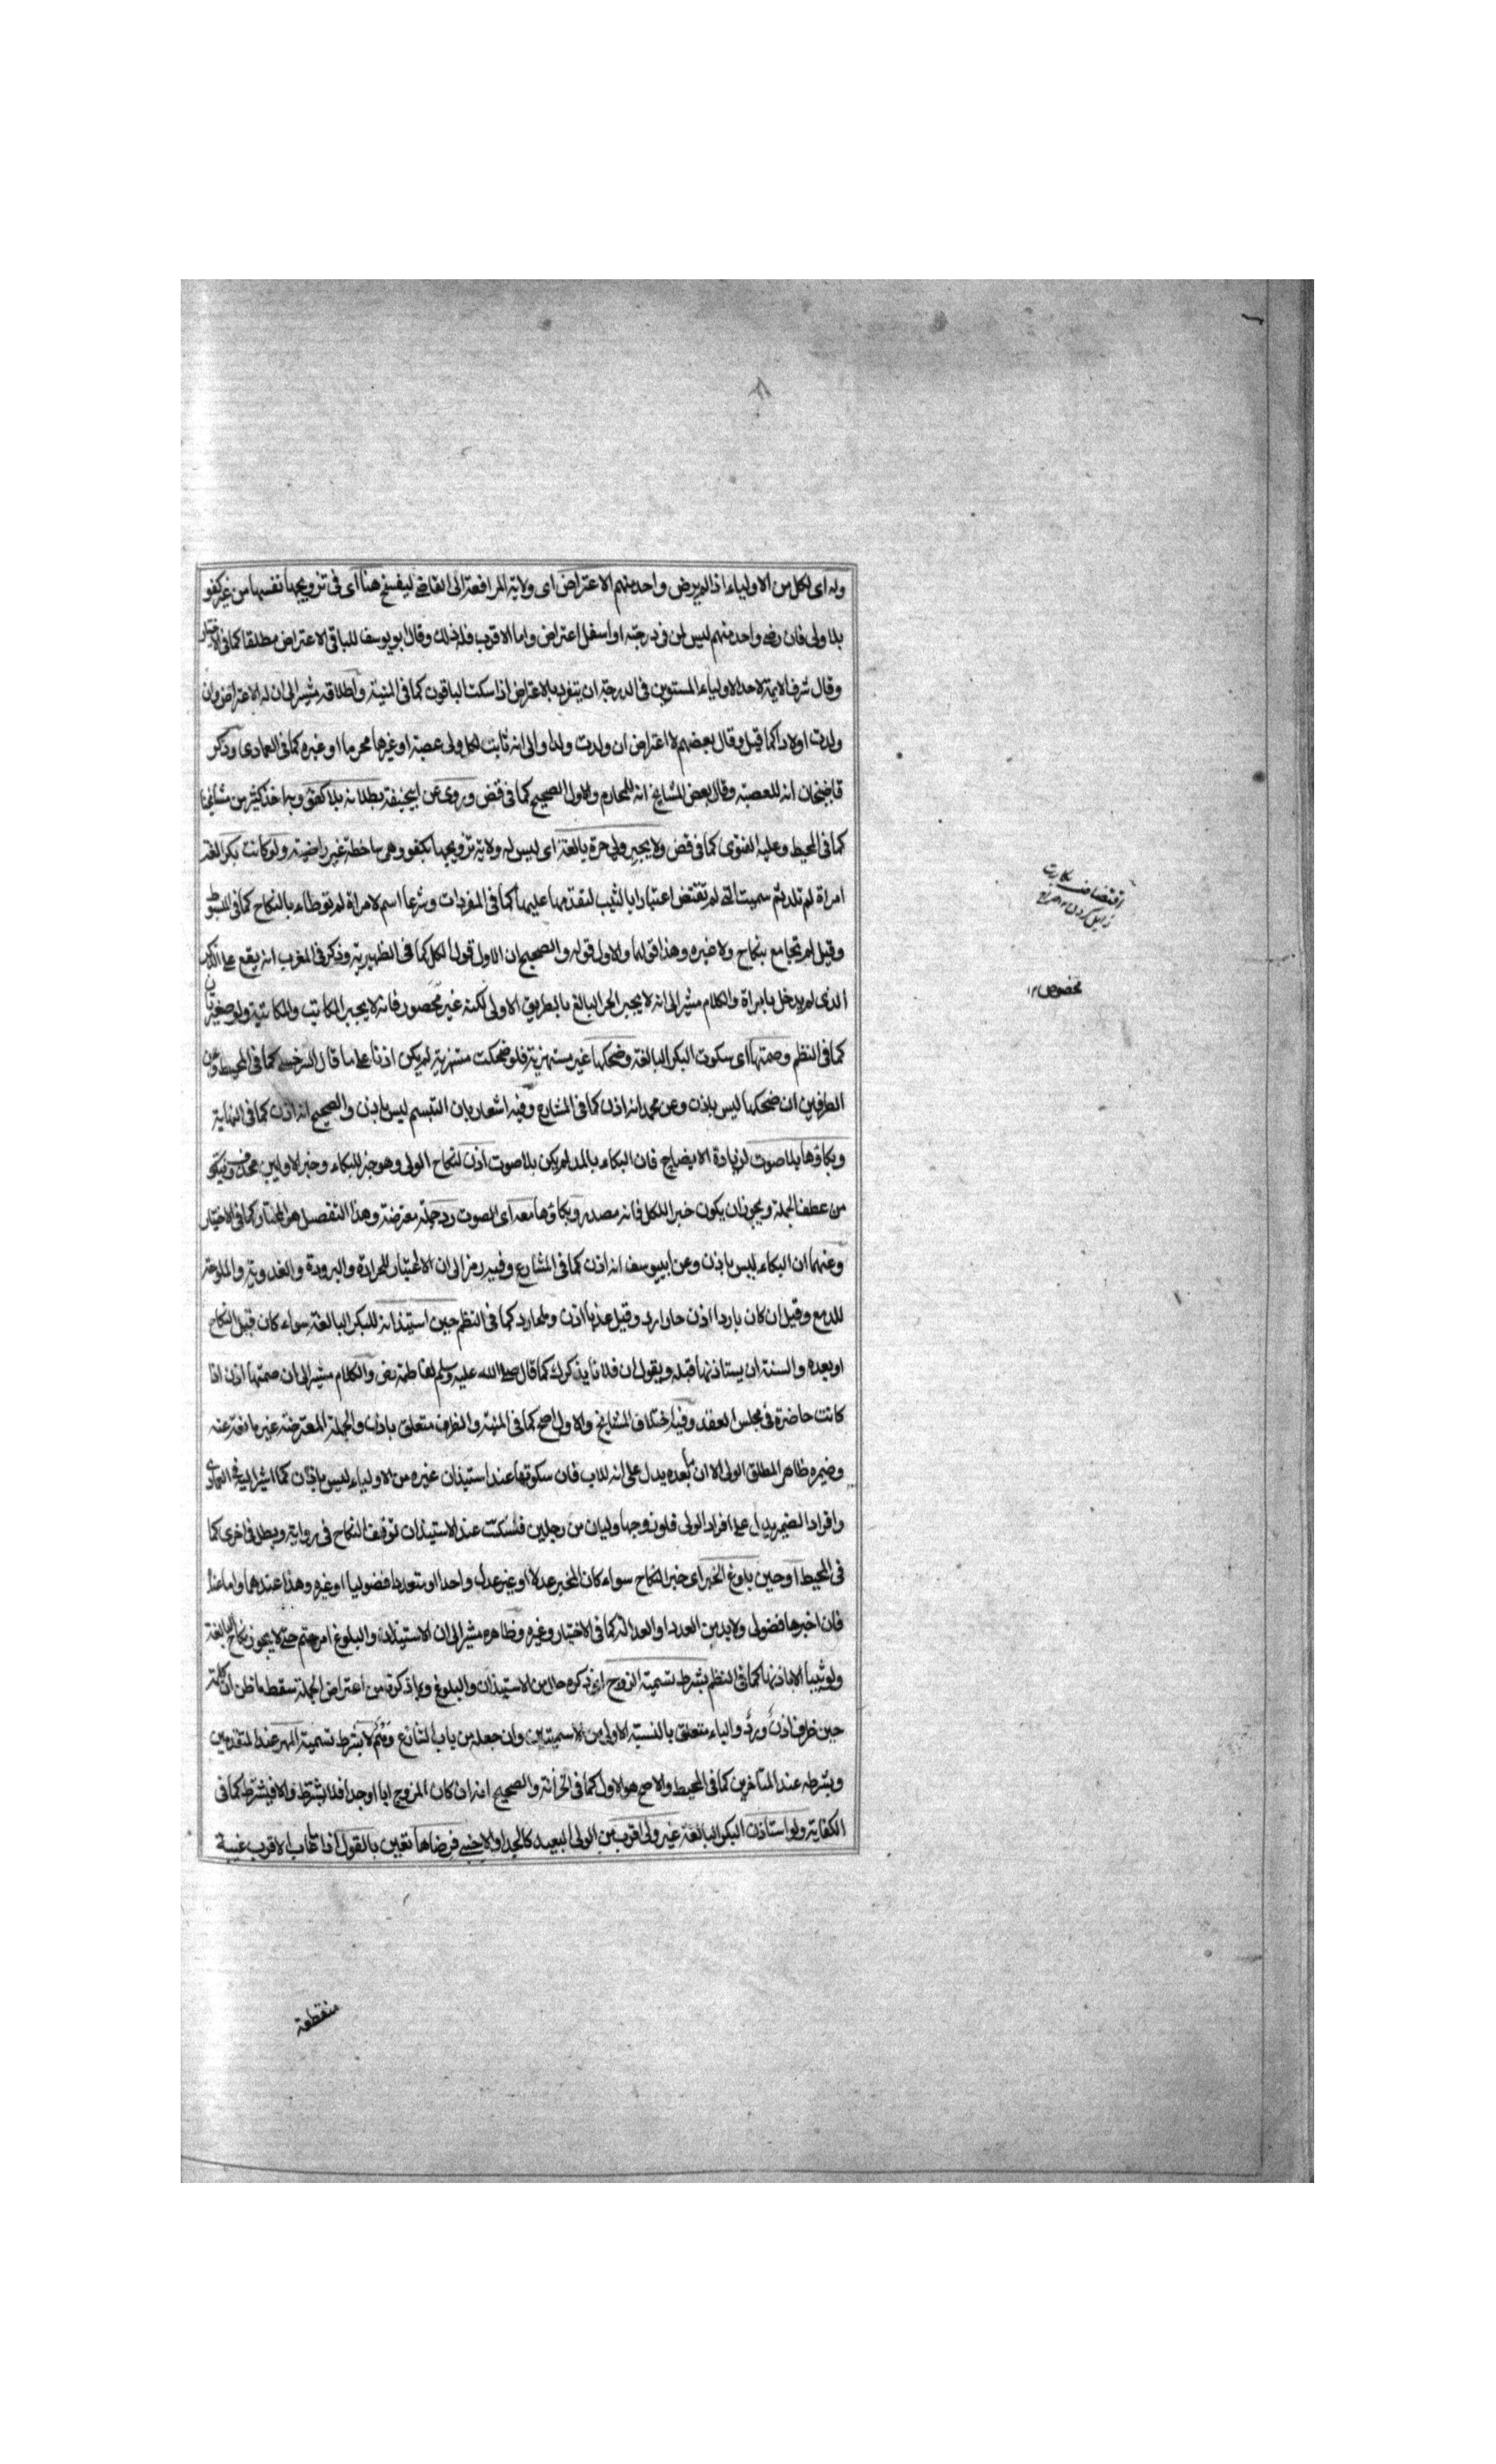 وله اى لكل من الاولياء اذا لم يرض واحد منهم الاعتراض اى ولاية المرافعة الى القاضى ليفسخ هنا اى فى تزويجها نفسها من غير كفو
بلا ولى فان رضى واحد منهم ليس لمن فى درجته او اسفل اعتراض واما الاقرب فله ذلك وقال ابو يوسف للباقى الاعتراض مطلقا كما فى الاختيار
وقال شرف الايمة لاحد الاولياء المستوين فى الدرجة ان يتفرد بالاعتراض اذا سكت الباقون كما فى المنية واطلاقه مشير الى ان له الاعتراض وان
ولدت اولادا كما قيل وقال بعضهم لا اعتراض ان ولدت ولدا والى انه ثابت لكل ولى عصبة او غيرها محرما او غيره كما فى العمادى وذكر
قاضيخان انه للعصبة وقال بعض المشايخ انه للمحارم والاول الصحيح كما فى قض وروى عن ابيحنيفة بطلانه بلا كفو وبه اخذ كثير من مشايخنا
كما فى المحيط وعليه الفتوى كما فى قض ولا يجبر ولى حرة بالغة اى ليس له ولاية تزويجها بكفو وهى ساخطة غير راضية ولو كانت بكرا لغة
امراة لم تلد ثم سميت التى لم تفتض اعتبارا بالثيب لتقدمها عليها كما فى المفردات وشرعا اسم لامراة لم توطاء بالنكاح كما فى المبسوط
وقيل لم تجامع بنكاح ولا غيره وهذا قولهما والاول قوله والصحيح ان الاول قول الكل كما فى الظهيرية وذكر فى المغرب انه يقع على الذكر
الذى لم يدخل بامراة والكلام مشير الى انه لا يجبر الحر البالغ بالطريق الاولى لكنه غير محصور فانه لا يجبر المكاتب والمكاتبة ولو صغيرتان
كما فى النظم وصمتها اى سكوت البكر البالغة وضحكها غير مستهزية فلو ضحكت مستهزية لم يكن اذنا على ما قال السرخسى كما فى المحيط وعن
الطرفين ان ضحكها ليس باذن وعن محمد انه اذن كما فى المشارع وفيه اشعار بان التبسم ليس باذن والصحيح انه اذن كما فى النهاية
وبكاؤها بلا صوت لزيادة الايضاح فان البكاء بالمد لم يكن بلا صوت اذن لنكاح الولى وهو خبر للبكاء وخبر الاوليين محذوف فيكو
من عطف الجملة ويجوز ان يكون خبرا للكل فانه مصدر وبكاؤها معه اى الصوت رد جملة معترضة وهذا التفصيل هو المختار كما فى الاختيار
وعنهما ان البكاء ليس باذن وعن ابييوسف انه اذن كما فى المشارع وفيه رمز الى ان لا اعتبار للحرارة والبرودة والعذوبة والملوحة
للدمع وقيل ان كان باردا اذن حارا رد وقيل عذبا اذن وملحا رد كما فى النظم حين استيذانه للبكر البالغة سواء كان قبل النكاح
او بعده والسنة ان يستاذنها قبله ويقول ان فلانا يذكرك كما قال صلى الله عليه وسلم لفاطمة رض والكلام مشير الى ان صمتها اذن اذا
كانت حاضرة فى مجلس العقد وفيه اختلاف المشايخ والاول اصح كما فى المنية والظرف متعلق باذن والجملة المعترضة غير مانعة عنه
وضميره ظاهر المطلق الولى الا ان ما بعده يدل على انه للاب فان سكوتها عند استيذان غيره من الاولياء ليس باذن كما اشير اليه فى العمادى
وافراد الضمير يدل على افراد الولى فلو زوجها وليان من رجلين فسكتت عند الاستيذان توقف النكاح فى رواية وبطل فى اخرى كما
فى المحيط او حين بلوغ الخبر اى خبر النكاح سواء كان المخبر عدلا او غير عدل واحدا او متعددا فضوليا او غيره وهذا عندهما واما عنده
فان اخبرها فضولى ولا بد من العدد او العدالة كما فى الاختيار وغيره وظاهره مشير الى ان الاستيذان والبلوغ امر حتم حتى لا يجوز نكاح البالغة
ولو ثيبا الا باذنها كما فى النظم بشرط تسمية الزوج اى ذكره حال من الاستيذان والبلوغ وبما ذكرنا من اعتراض الجملة سقط ما ظن ان كلمة
حين ظرف اذن ورد والباء متعلق بالنسبة الاولى من الاسميتين وان جعله من باب التنازع وهم لا بشرط تسمية المهر عند المتقدمين
وبشرطه عند المتاخرين كما فى المحيط والاصح هو الاول كما فى الخزانة والصحيح انه ان كان المزوج ابا او جدا فلا يشترط والا فيشترط كما فى
الكفاية ولو استاذن البكر البالغة غير ولى اقرب من الولى البعيد كالجد او الاجنبى فرضاها تعين بالقول اذا غاب الاقرب غيبة
منقطعة
افتضاض بكارت
زايل كردن ۱۲ صراح
مخصوص ۱۲